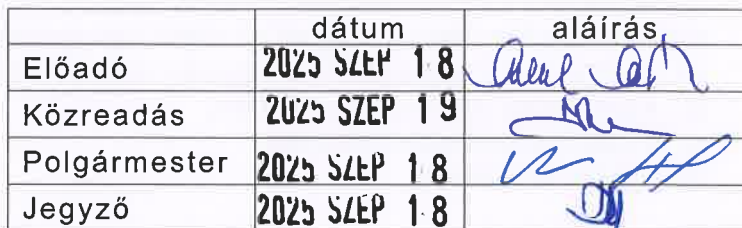 dátum aláírás
Előadó 2025 SZEP 18
Közreadás 2025 SZEP 19
Polgármester 2025 SZEP 18
Jegyző 2025 SZEP 18